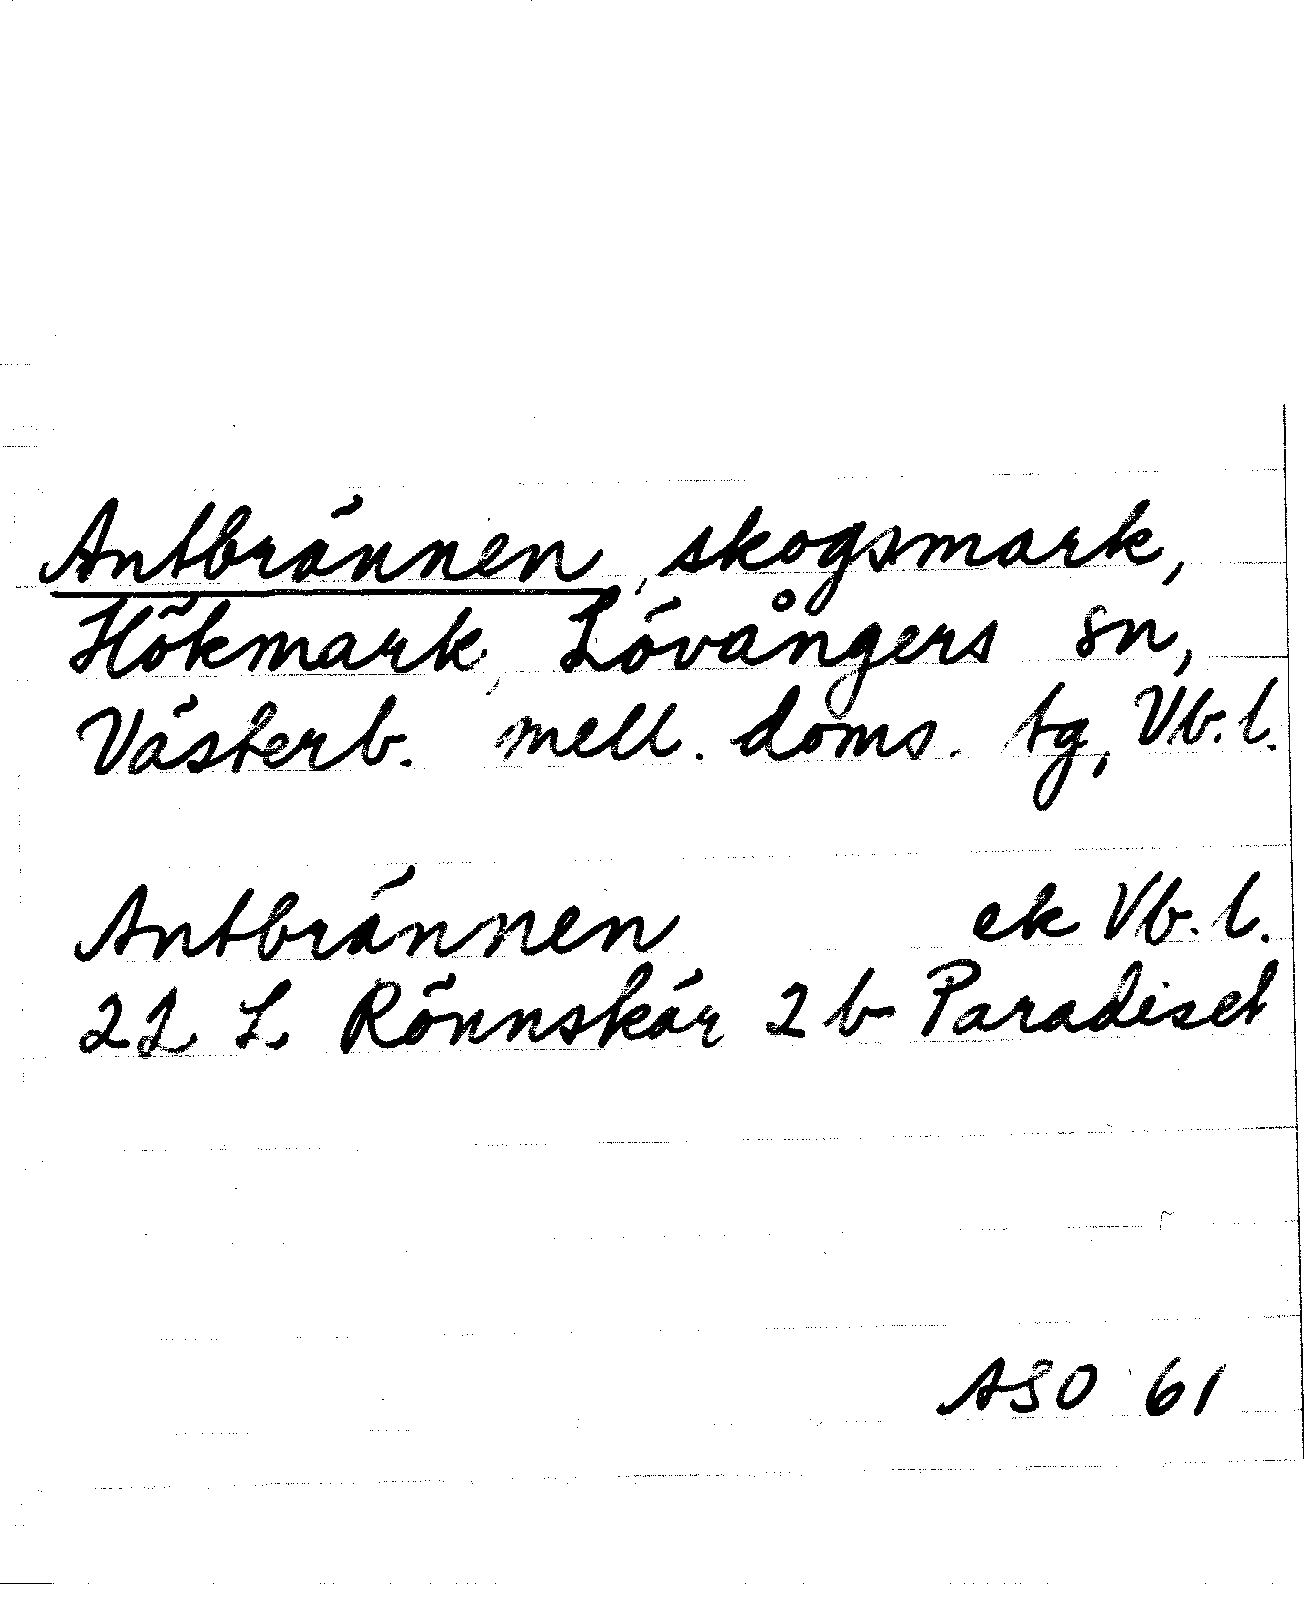 Antbrännen, skogsmark,
Hökmark, Lövångers sn,
Västerb. mell. doms. tg, Vb. l.
Antbrännen ek Vb. l.
22 L Rönnskär 2 b Paradiset
ASO 61